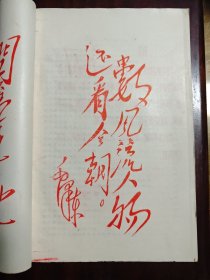 数风流人物
还看今朝。
毛泽东